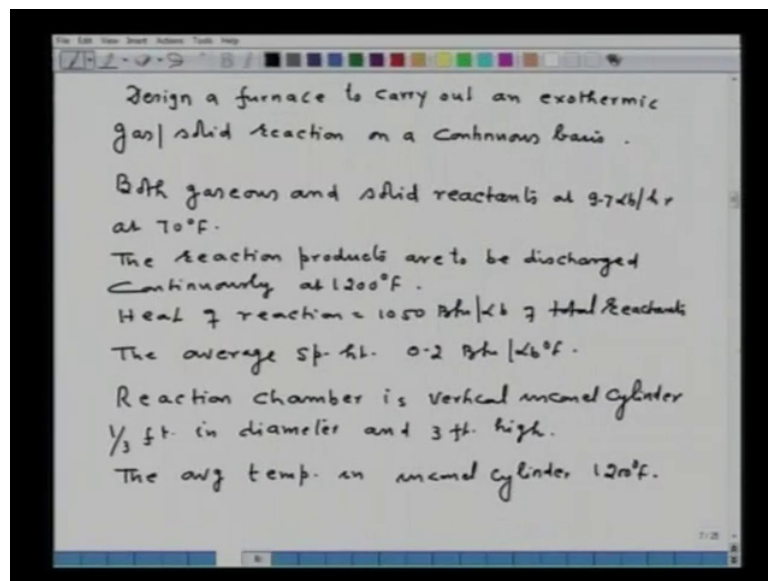 File Edit View Insert Actions Tools Help
Design a furnace to carry out an exothermic
gas/solid reaction on a continuous basis.
Both gaseous and solid reactants at 9.7 lb/hr
at 70°F.
The reaction products are to be discharged
Continuously at 1200°F.
Heat of reaction = 1050 Btu/lb of total reactants
The average sp. ht. 0.2 Btu/lb°F.
Reaction chamber is vertical inconel cylinder
1/3 ft. in diameter and 3 ft. high.
The avg temp. in inconel cylinder 1200°F.
7/25